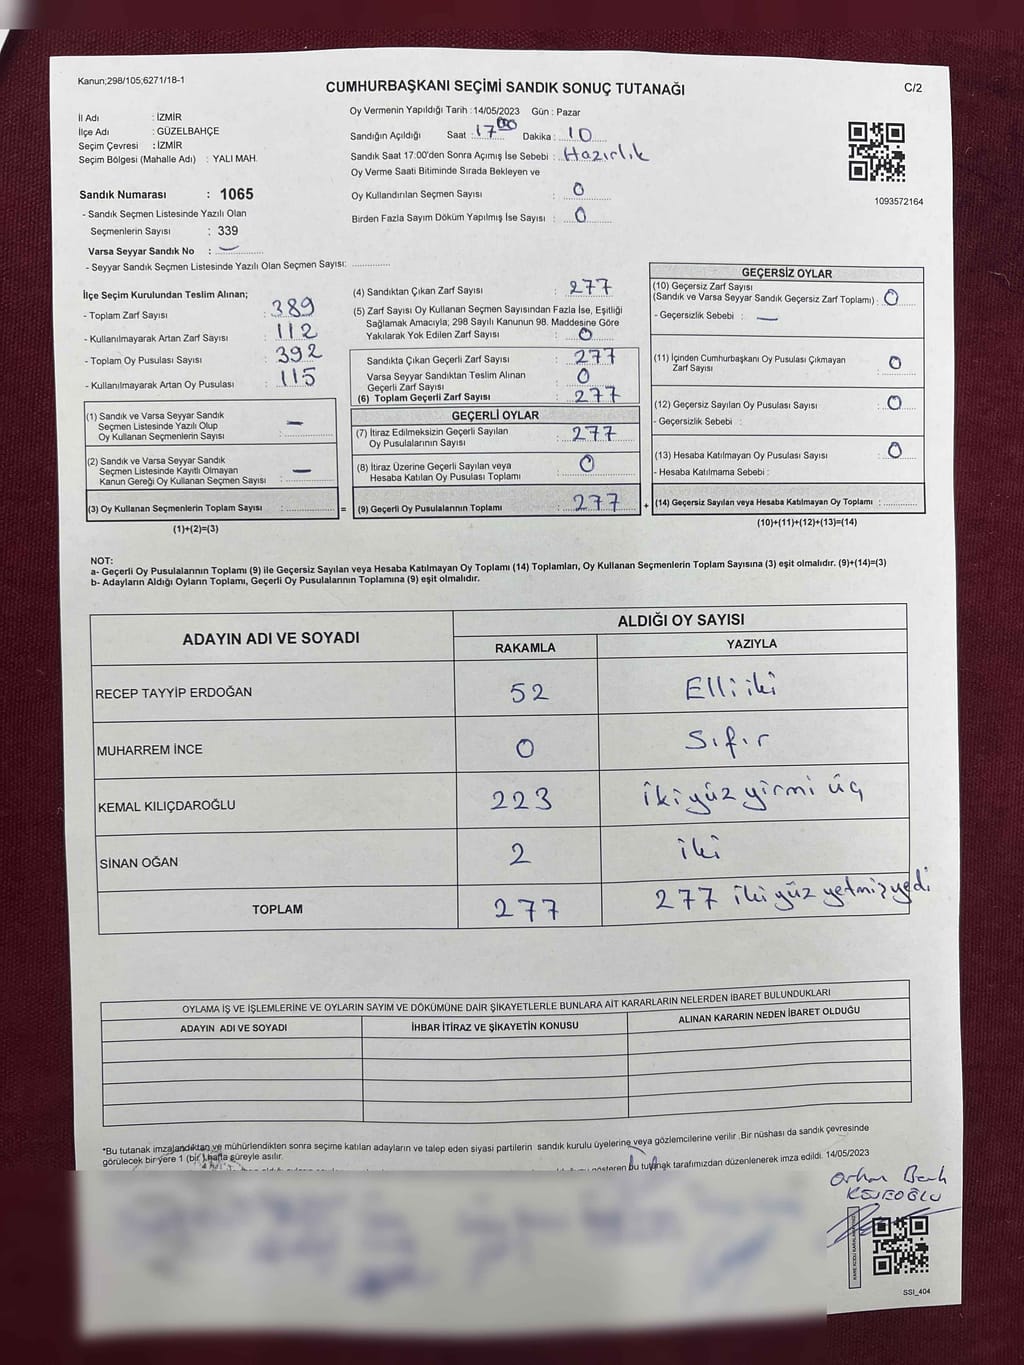 Kanun;298/105;6271/18-1
CUMHURBAŞKANI SEÇİMİ SANDIK SONUÇ TUTANAĞI
C/2
İl Adı : İZMİR
İlçe Adı : GÜZELBAHÇE
Seçim Çevresi : İZMİR
Seçim Bölgesi (Mahalle Adı) : YALI MAH.
Oy Vermenin Yapıldığı Tarih : 14/05/2023 Gün : Pazar
Sandığın Açıldığı Saat : 17 00 Dakika : 10
Sandık Saat 17:00'den Sonra Açımış İse Sebebi : Hazırlık
Oy Verme Saati Bitiminde Sırada Bekleyen ve
Oy Kullandırılan Seçmen Sayısı : 0
Birden Fazla Sayım Döküm Yapılmış İse Sayısı : 0
1093572164
Sandık Numarası : 1065
- Sandık Seçmen Listesinde Yazılı Olan
Seçmenlerin Sayısı : 339
Varsa Seyyar Sandık No : —
- Seyyar Sandık Seçmen Listesinde Yazılı Olan Seçmen Sayısı: ..............
İlçe Seçim Kurulundan Teslim Alınan;
- Toplam Zarf Sayısı : 389
- Kullanılmayarak Artan Zarf Sayısı : 112
- Toplam Oy Pusulası Sayısı : 392
- Kullanılmayarak Artan Oy Pusulası : 115
(1) Sandık ve Varsa Seyyar Sandık
Seçmen Listesinde Yazılı Olup
Oy Kullanan Seçmenlerin Sayısı : —
(2) Sandık ve Varsa Seyyar Sandık
Seçmen Listesinde Kayıtlı Olmayan
Kanun Gereği Oy Kullanan Seçmen Sayısı : —
(3) Oy Kullanan Seçmenlerin Toplam Sayısı : .............. =
(1)+(2)=(3)
(4) Sandıktan Çıkan Zarf Sayısı : 277
(5) Zarf Sayısı Oy Kullanan Seçmen Sayısından Fazla İse, Eşitliği
Sağlamak Amacıyla; 298 Sayılı Kanunun 98. Maddesine Göre
Yakılarak Yok Edilen Zarf Sayısı : 0
Sandıkta Çıkan Geçerli Zarf Sayısı : 277
Varsa Seyyar Sandıktan Teslim Alınan
Geçerli Zarf Sayısı : 0
(6) Toplam Geçerli Zarf Sayısı : 277
GEÇERLİ OYLAR
(7) İtiraz Edilmeksizin Geçerli Sayılan
Oy Pusulalarının Sayısı : 277
(8) İtiraz Üzerine Geçerli Sayılan veya
Hesaba Katılan Oy Pusulası Toplamı : 0
(9) Geçerli Oy Pusulalarının Toplamı : 277 +
GEÇERSİZ OYLAR
(10) Geçersiz Zarf Sayısı
(Sandık ve Varsa Seyyar Sandık Geçersiz Zarf Toplamı) : 0
- Geçersizlik Sebebi : —
(11) İçinden Cumhurbaşkanı Oy Pusulası Çıkmayan
Zarf Sayısı : 0
(12) Geçersiz Sayılan Oy Pusulası Sayısı : 0
- Geçersizlik Sebebi :
(13) Hesaba Katılmayan Oy Pusulası Sayısı : 0
- Hesaba Katılmama Sebebi :
(14) Geçersiz Sayılan veya Hesaba Katılmayan Oy Toplamı : ..........
(10)+(11)+(12)+(13)=(14)
NOT:
a- Geçerli Oy Pusulalarının Toplamı (9) ile Geçersiz Sayılan veya Hesaba Katılmayan Oy Toplamı (14) Toplamları, Oy Kullanan Seçmenlerin Toplam Sayısına (3) eşit olmalıdır. (9)+(14)=(3)
b- Adayların Aldığı Oyların Toplamı, Geçerli Oy Pusulalarının Toplamına (9) eşit olmalıdır.
ADAYIN ADI VE SOYADI
ALDIĞI OY SAYISI
RAKAMLA YAZIYLA
RECEP TAYYİP ERDOĞAN 52 Elli iki
MUHARREM İNCE 0 Sıfır
KEMAL KILIÇDAROĞLU 223 ikiyüz yirmi üç
SİNAN OĞAN 2 iki
TOPLAM 277 277 iki yüz yetmiş yedi
OYLAMA İŞ VE İŞLEMLERİNE VE OYLARIN SAYIM VE DÖKÜMÜNE DAİR ŞİKAYETLERLE BUNLARA AİT KARARLARIN NELERDEN İBARET BULUNDUKLARI
ADAYIN ADI VE SOYADI İHBAR İTİRAZ VE ŞİKAYETİN KONUSU ALINAN KARARIN NEDEN İBARET OLDUĞU
*Bu tutanak imzalandıktan ve mühürlendikten sonra seçime katılan adayların ve talep eden siyasi partilerin sandık kurulu üyelerine veya gözlemcilerine verilir. Bir nüshası da sandık çevresinde
görülecek bir yere 1 (bir) hafta süreyle asılır.
bu tutanak tarafımızdan düzenlenerek imza edildi. 14/05/2023
Orhan
SSI_404